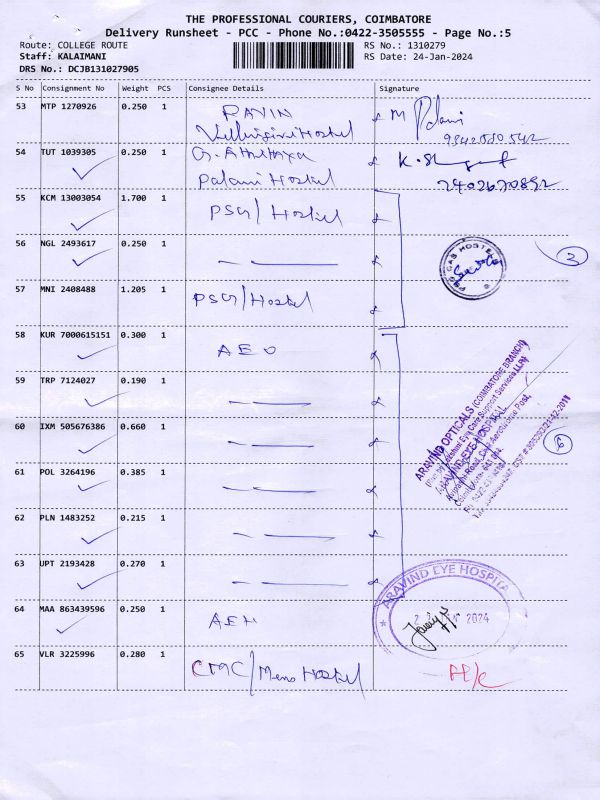 THE PROFESSIONAL COURIERS, COIMBATORE
Delivery Runsheet - PCC - Phone No.:0422-3505555 - Page No.:5
Route: COLLEGE ROUTE
Staff: KALAIMANI
DRS No.: DCJB131027905
RS No.: 1310279
RS Date: 24-Jan-2024
S No Consignment No Weight PCS Consignee Details Signature
53 MTP 1270926 0.250 1 Hostel
9842580542
54 TUT 1039305 0.250 1
Palani Hostel
55 KCM 13003054 1.700 1 PSG/Hostel
56 NGL 2493617 0.250 1
57 MNI 2408488 1.205 1 PSG/Hostel
58 KUR 7000615151 0.300 1
59 TRP 7124027 0.190 1
60 IXM 505676386 0.660 1
61 POL 3264196 0.385 1
62 PLN 1483252 0.215 1
63 UPT 2193428 0.270 1
64 MAA 863439596 0.250 1 AEH
65 VLR 3225996 0.280 1 CMC/Mens Hostel H/c
PSG CAS HOSTEL
ARAVIND OPTICALS (COIMBATORE BRANCH)
ARAVIND EYE HOSPITAL
2024